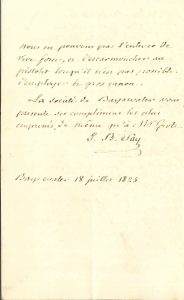 nous ne pouvons pas l'enlever de
vive force, et d'escarmoucher au
pistolet lorsqu'il n'est pas possible
d'employer le gros canon.
La société de Bayswater vous
présente ses compliments les plus
empressés, de même qu'à Mr Grote.
J. B. Say
Bayswater 18 juillet 1825